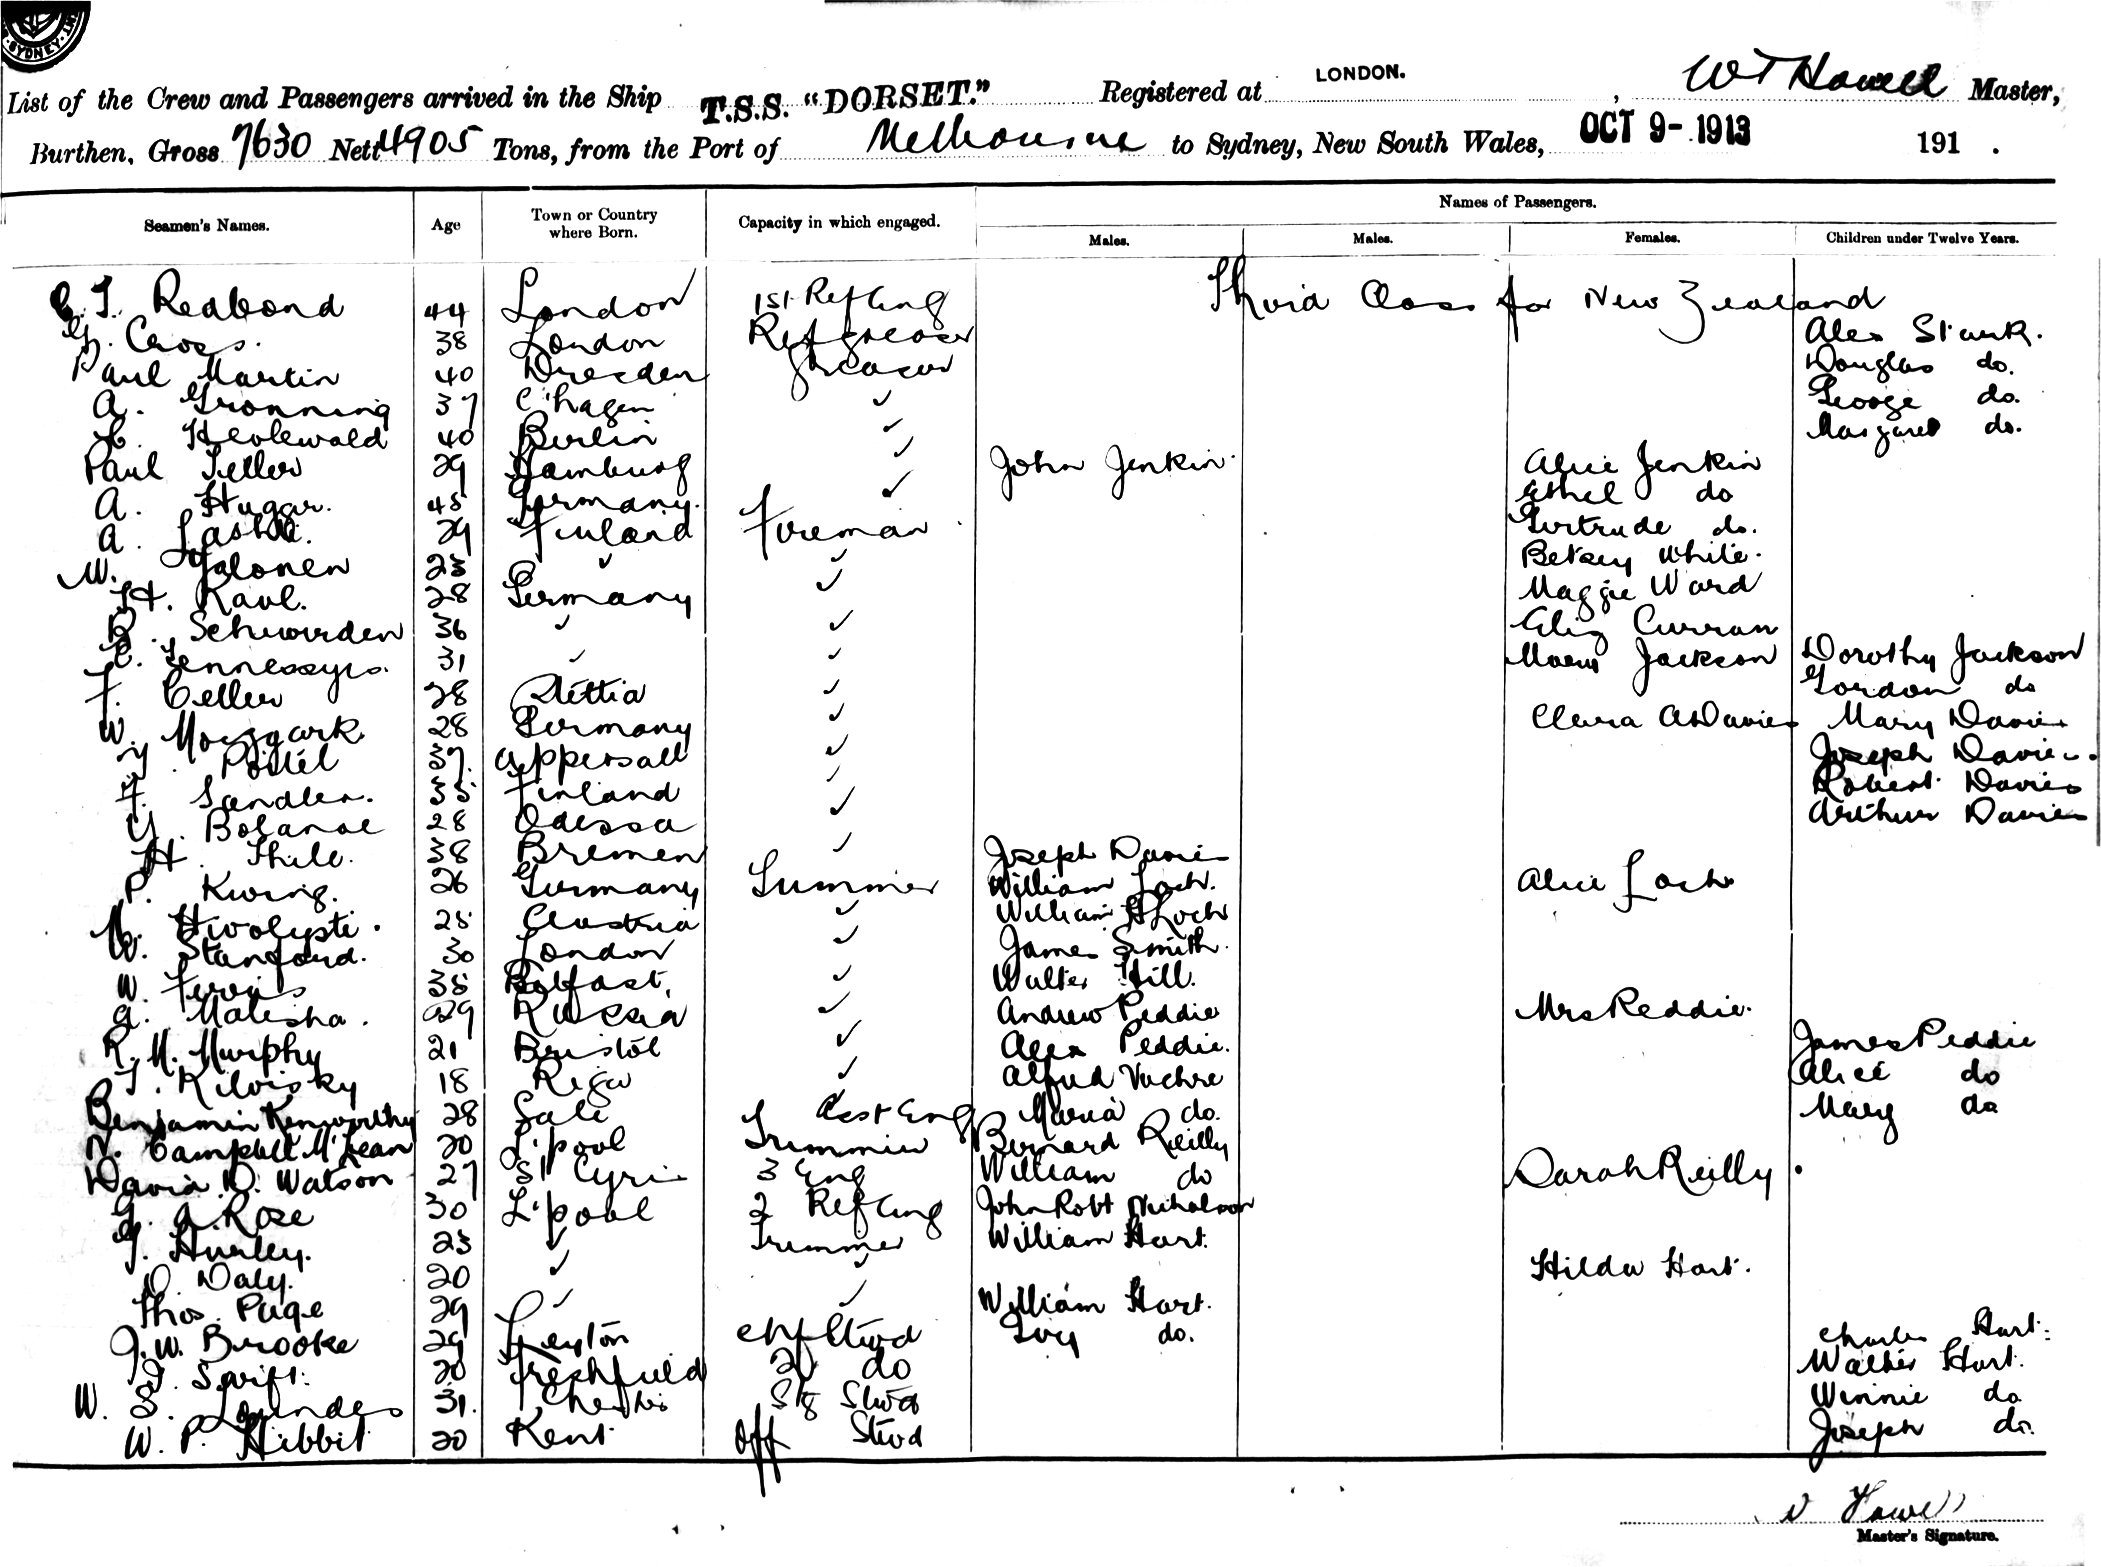 SYDNEY
List of the Crew and Passengers arrived in the Ship T.S.S. "DORSET." Registered at LONDON. , W T Howell Master,
Burthen, Gross 7630 Nett 4905 Tons, from the Port of Melbourne to Sydney, New South Wales, OCT 9- 1913 191 .
Names of Passengers.
Seamen's Names. Age Town or Country where Born. Capacity in which engaged. Males. Males. Females. Children under Twelve Years.
Third Class for New Zealand
T. Redbond 44 London 1st Ref Eng
Cross. 38 London Ref greaser Alex Stark.
Paul Martin 40 Dresden greaser Douglas do.
A. Gronning 37 C'hagen ✓ George do.
40 Berlin ✓ Margaret do.
Paul 29 Hamburg ✓ John Jenkin. Alice Jenkin
A. Hugar. 45 Germany. ✓ Ethel do
A. 29 Finland Fireman Gertrude do.
W. Yalonen 23 ✓ ✓ Betsey White.
H. Kaul. 28 Germany ✓ Maggie Ward
36 ✓ ✓ Eliz Curran
31 ✓ ✓ Jackson Dorothy Jackson
F. 28 ✓ Gordon do
W. 28 Germany ✓ Clara A Davies Mary Davies
37. ✓ Joseph Davies.
F. Sandler. 35 Finland ✓ Robert Davies
28 Odessa ✓ Arthur Davies
H. Thile. 38 Bremen ✓ Joseph Davies
P. 26 Germany William Loch. Alice Loch
25 Austria ✓ William H Loch
W. Stanford. 30 London ✓ James Smith.
W. 38 Belfast, ✓ Walter Hill.
Malisha. 29 Russia ✓ Andrew Peddie Mrs Peddie.
R. M. Murphy 21 Bristol ✓ Alex Peddie. James Peddie
18 Riga ✓ Alfred Alice do
Benjamin Kenworthy 28 Sale Asst Eng Maria do. Mary do
N. Campbell McLean 20 L'pool Trimmer Bernard Reilly
David D. Watson 27 St 3 Eng William do Sarah Reilly
A. Rose 30 L'pool 2 Ref Eng John Robt Nicholson
Hurley. 23 ✓ Trimmer William Hart.
D. Daly. 20 ✓ ✓ Hilda Hart.
Thos. Page 29 ✓ ✓ William Hart.
J. W. Brooke 29 Leyton Chf Stwd Ivy do. Charles Hart.
Swift. 20 Freshfield 2d do Walter Hart.
W. S. Lowndes 31. Chester Stg Stwd Winnie do
W. P. Hibbit 20 Kent Off Stwd Joseph do.
Howell
Master's Signature.